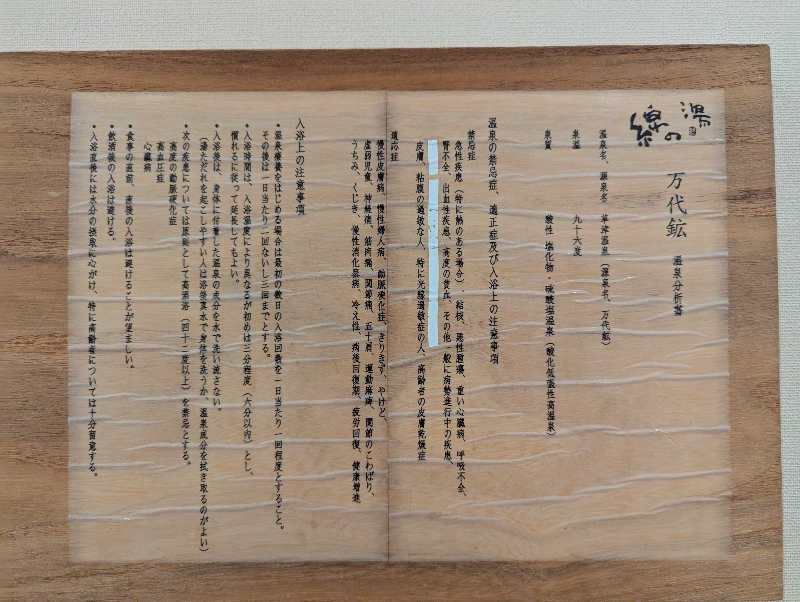 綿の湯
万代鉱 温泉分析書
温泉名、源泉名 草津温泉(源泉名、万代鉱)
泉温 九十六度
泉質 酸性・塩化物・硫酸塩温泉(酸化低張性高温泉)
温泉の禁忌症、適正症及び入浴上の注意事項
禁忌症
急性疾患(特に熱のある場合)、結核、悪性腫瘍、重い心臓病、呼吸不全、
腎不全、出血性疾患、高度の貧血、その他一般に病勢進行中の疾患、
皮膚、粘膜の過敏な人、特に光線過敏症の人、高齢者の皮膚乾燥症
適応症
慢性皮膚病、慢性婦人病、動脈硬化症、きりきず、やけど、
虚弱児童、神経痛、筋肉痛、関節痛、五十肩、運動麻痺、関節のこわばり、
うちみ、くじき、慢性消化器病、冷え性、病後回復期、疲労回復、健康増進
入浴上の注意事項
・温泉療養をはじめる場合は最初の数日の入浴回数を一日当たり一回程度とすること。
その後は一日当たり二回ないし三回までとする。
・入浴時間は、入浴温度により異なるが初めは三分程度(六分以内)とし、
慣れるに従って延長してもよい。
・入浴後は、身体に付着した温泉の成分を水で洗い流さない。
(湯ただれを起こしやすい人は浴後真水で身体を洗うか、温泉成分を拭き取るのがよい)
・次の疾患については原則として高温浴(四十二度以上)を禁忌とする。
高度の動脈硬化症
高血圧症
心臓病
・食事の直前、直後の入浴は避けることが望ましい。
・飲酒後の入浴は避ける。
・入浴直後には水分の摂取に心がけ、特に高齢者については十分留意する。